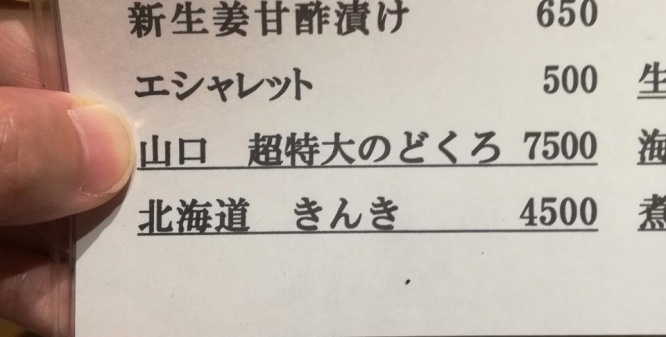 新生姜甘酢漬け 650
エシャレット 500
山口 超特大のどくろ 7500
北海道 きんき 4500
生
海
煮